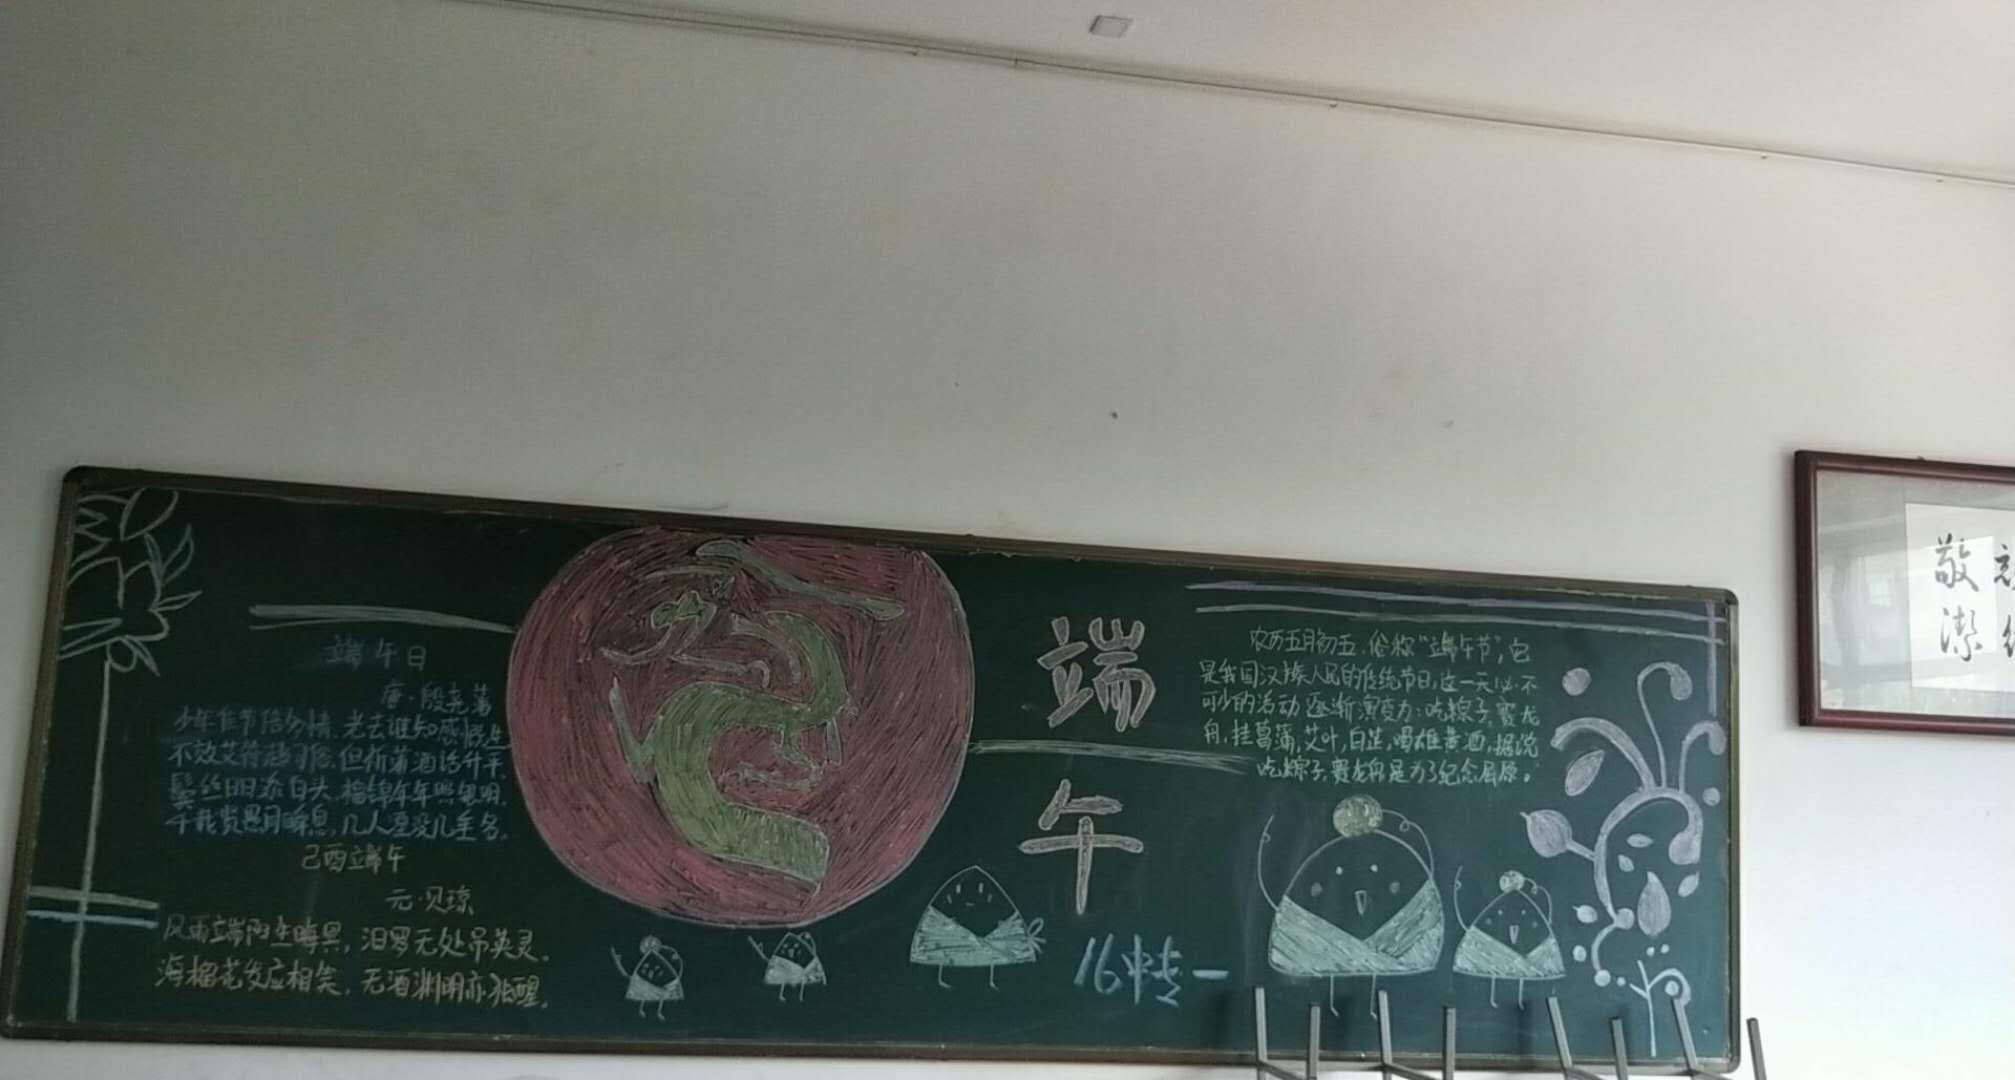 端午日
唐·殷尧藩
少年佳节倍多情,老去谁知感慨生
不效艾符趋习俗,但祈蒲酒话升平
鬓丝日日添白头,榴锦年年照眼明,
千载贤愚同瞬息,几人湮没几垂名。
己酉端午
元·贝琼
风雨端阳生晦冥,汨罗无处吊英灵。
海榴花发应相笑,无酒渊明亦独醒。
端
午
16中专一
农历五月初五,俗称“端午节”,它
是我国汉族人民的传统节日,这一天必不
可少的活动逐渐演变为:吃粽子,赛龙
舟,挂菖蒲,艾叶,白芷,喝雄黄酒,据说
吃粽子,赛龙舟是为了纪念屈原。
敬
潔